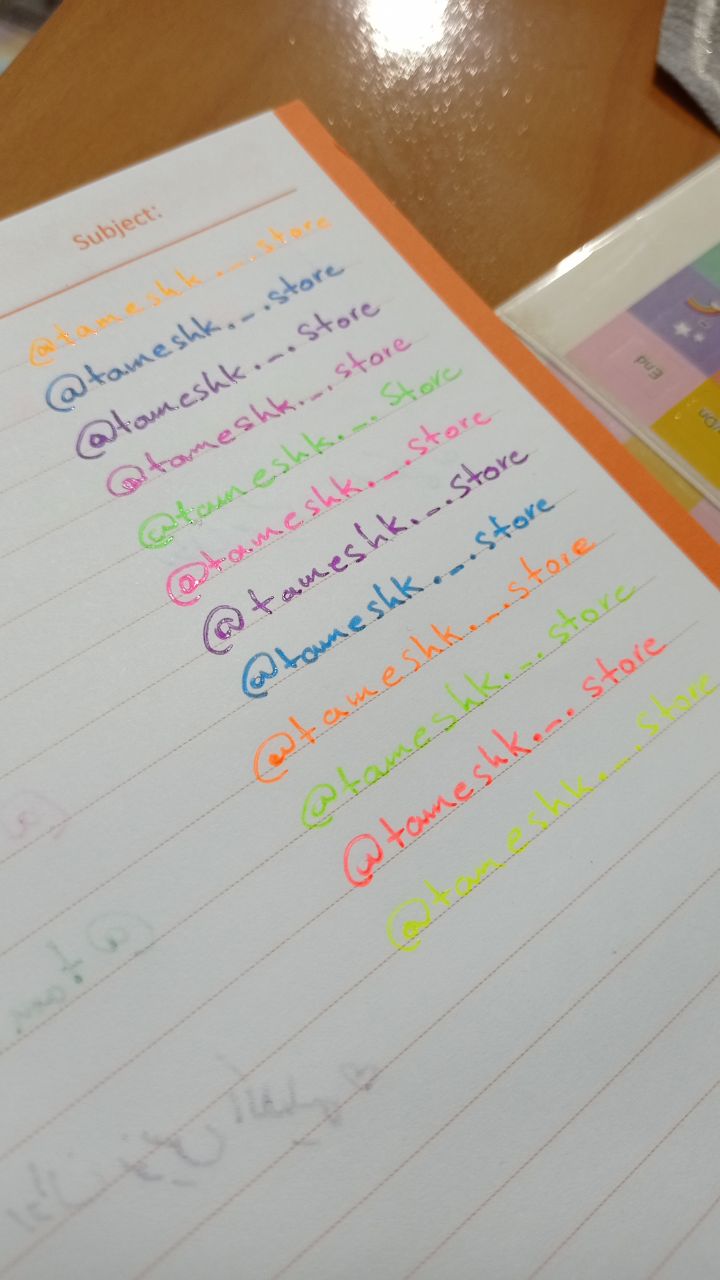 Subject:
@tameshk._.store
@tameshk._.store
@tameshk._.store
@tameshk._.store
@tameshk._.store
@tameshk._.store
@tameshk._.store
@tameshk._.store
@tameshk._.store
@tameshk._.store
@tameshk._.store
@tameshk._.store
End